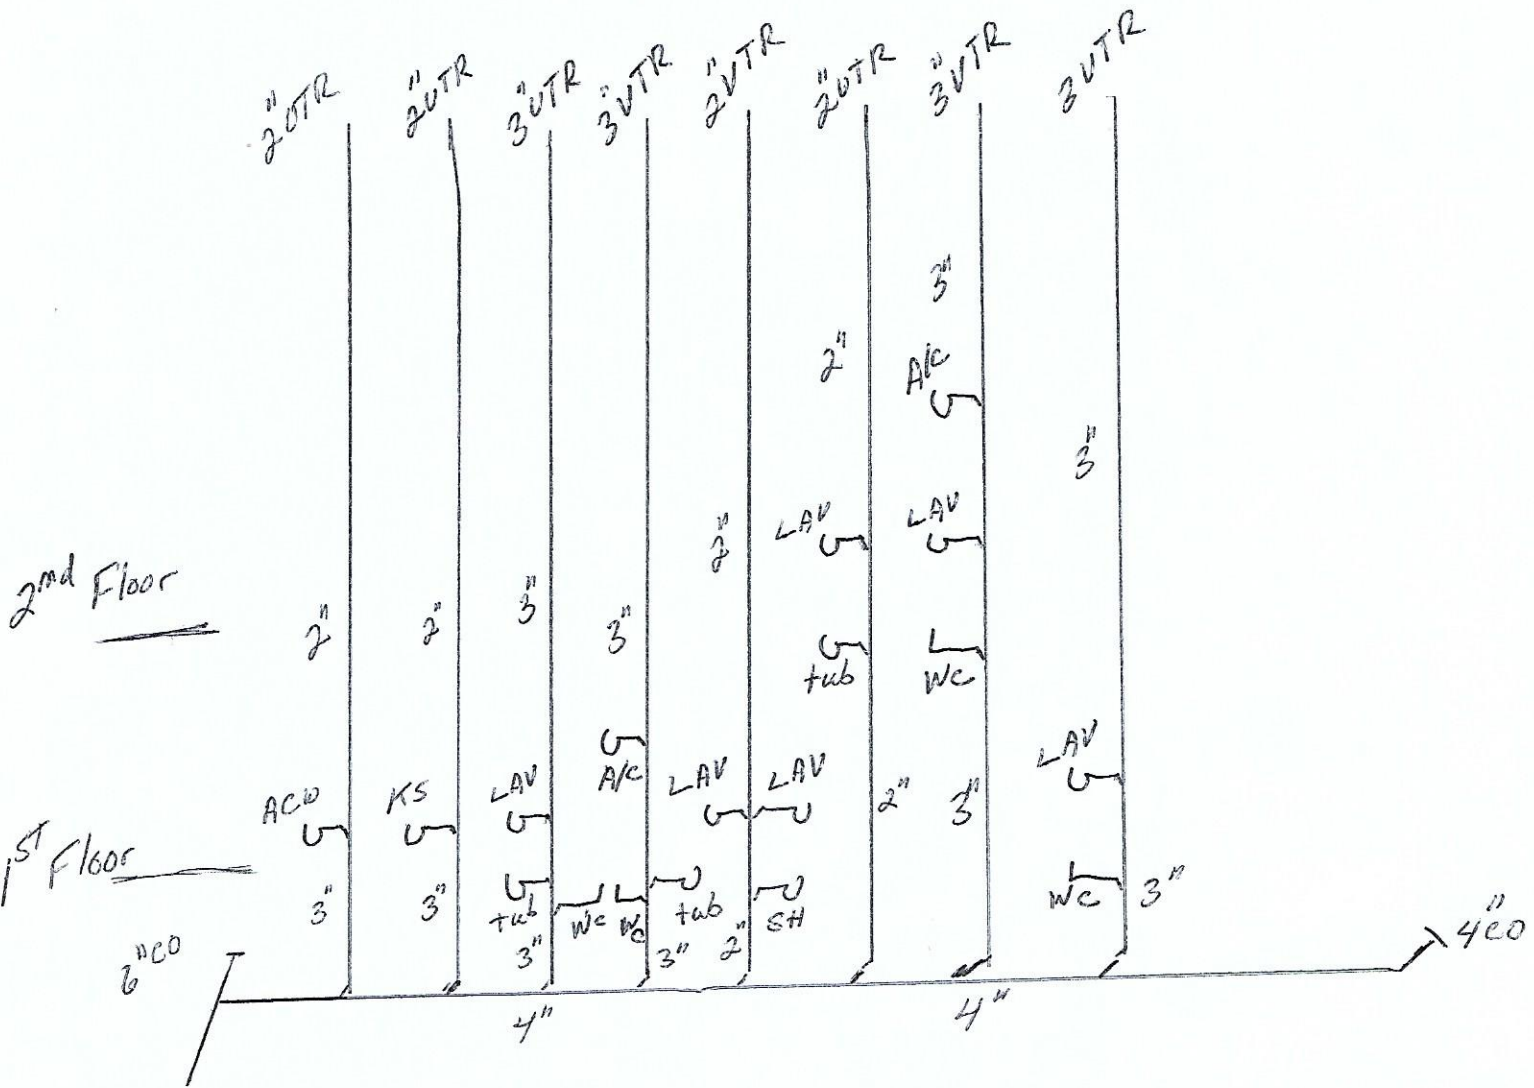 2" VTR
2" VTR
3" VTR
3" VTR
2" VTR
2" VTR
3" VTR
3 VTR
3"
2"
A/C
3"
LAV
LAV
2"
2nd Floor
2"
2"
3"
3"
tub
WC
LAV
A/C
LAV
LAV
ACW
KS
LAV
2"
3"
1ST Floor
3"
3"
tub
WC
WC
tub
SH
WC
3"
3"
3"
2"
6" CO
4" CO
4"
4"